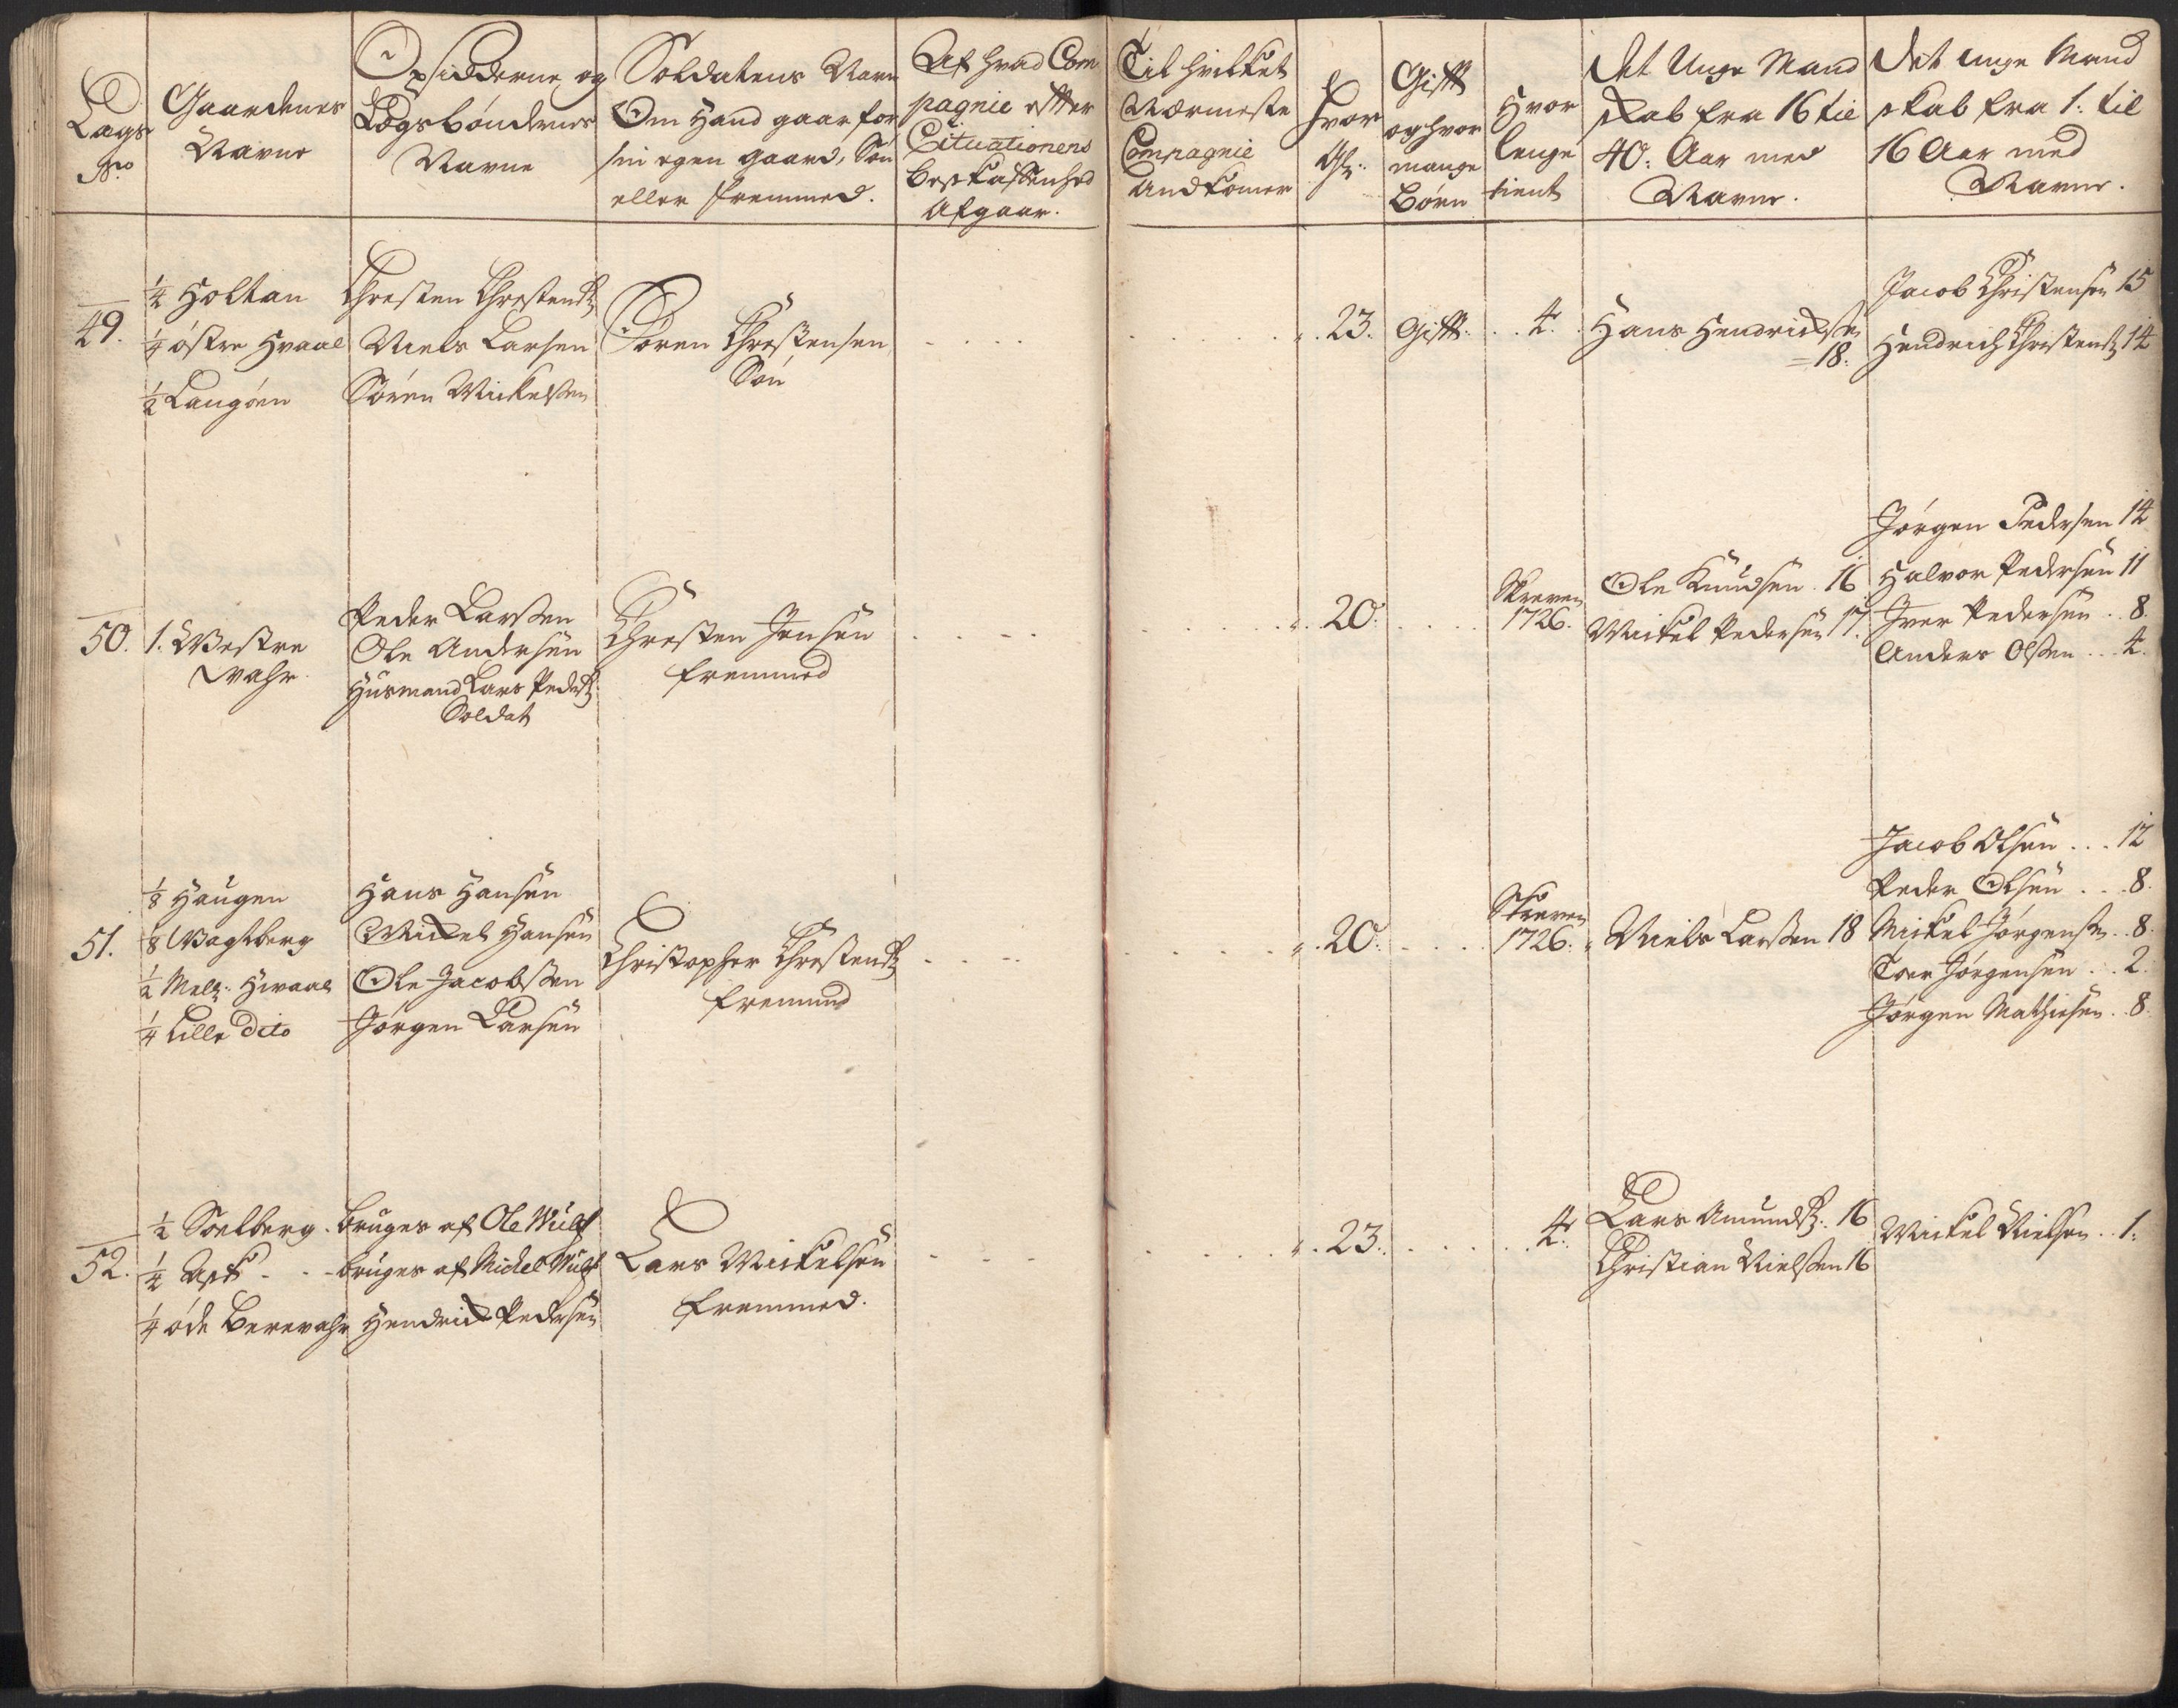 Lags No
Gaardenes Navne
Opsidderne og Lægsbøndernes Navne
Soldatens Navn Om Hand gaar for sin egen gaard, Søn eller fremmed.
Af hvad Compagnie effter Cituationens beskaffenhed Afgaar.
Til hvilket Nærmeste Compagnie Andkomer
Hvor Gl:
Gifft og hvor mange Børn
Hvor lenge tient
Det Unge Mandskab fra 16 til 40: Aar med Navne.
Det unge Mandskab fra 1: til 16 Aar med Navne.
49.
1/4 Holtan
1/4 østre Hvaal
1/2 Langøen
Chresten Chrestens:
Niels Larsen
Søren Mickelsen
Søren Chrestensen
Søn
23.
Gifft
4.
Hans Hendrichsen
18.
Jacob Christensen 15
Hendrich Christens: 14
50.
1. Westre
Peder Larsen
Ole Andersen
Husmand Lars Peders:
Soldat
Chresten Jensen
fremmed
20.
Skreven
1726.
Ole Knudsen 16
Mickel Pedersen 17.
Jørgen Pedersen 14
Halvor Pedersen 11
Iver Pedersen 8.
Anders Olsen 4.
51.
1/8 Haugen
1/8 Wagtberg
1/2 Mell: Hvaal
1/4 Lille Dito
Hans Hansen
Mickel Hansen
Ole Jacobsen
Jørgen Larsen
Christopher Chrestens:
fremmed
20.
Skreven
1726.
Niels Larsen 18
Jacob Olsen 12
Peder Olsen 8.
Mickel Jørgensen 8.
Toer Jørgensen 2.
Jørgen Mathisen 8.
52.
1/2 Soelberg
1/4 Ask
1/4 øde Berevahr
bruges af Ole Wulf
bruges af Michel Wulf
Hendrich Pedersen
Lars Mickelsen
fremmed.
23.
4.
Lars Amunds: 16
Christian Nielsen 16
Mickel Nielsen 1.